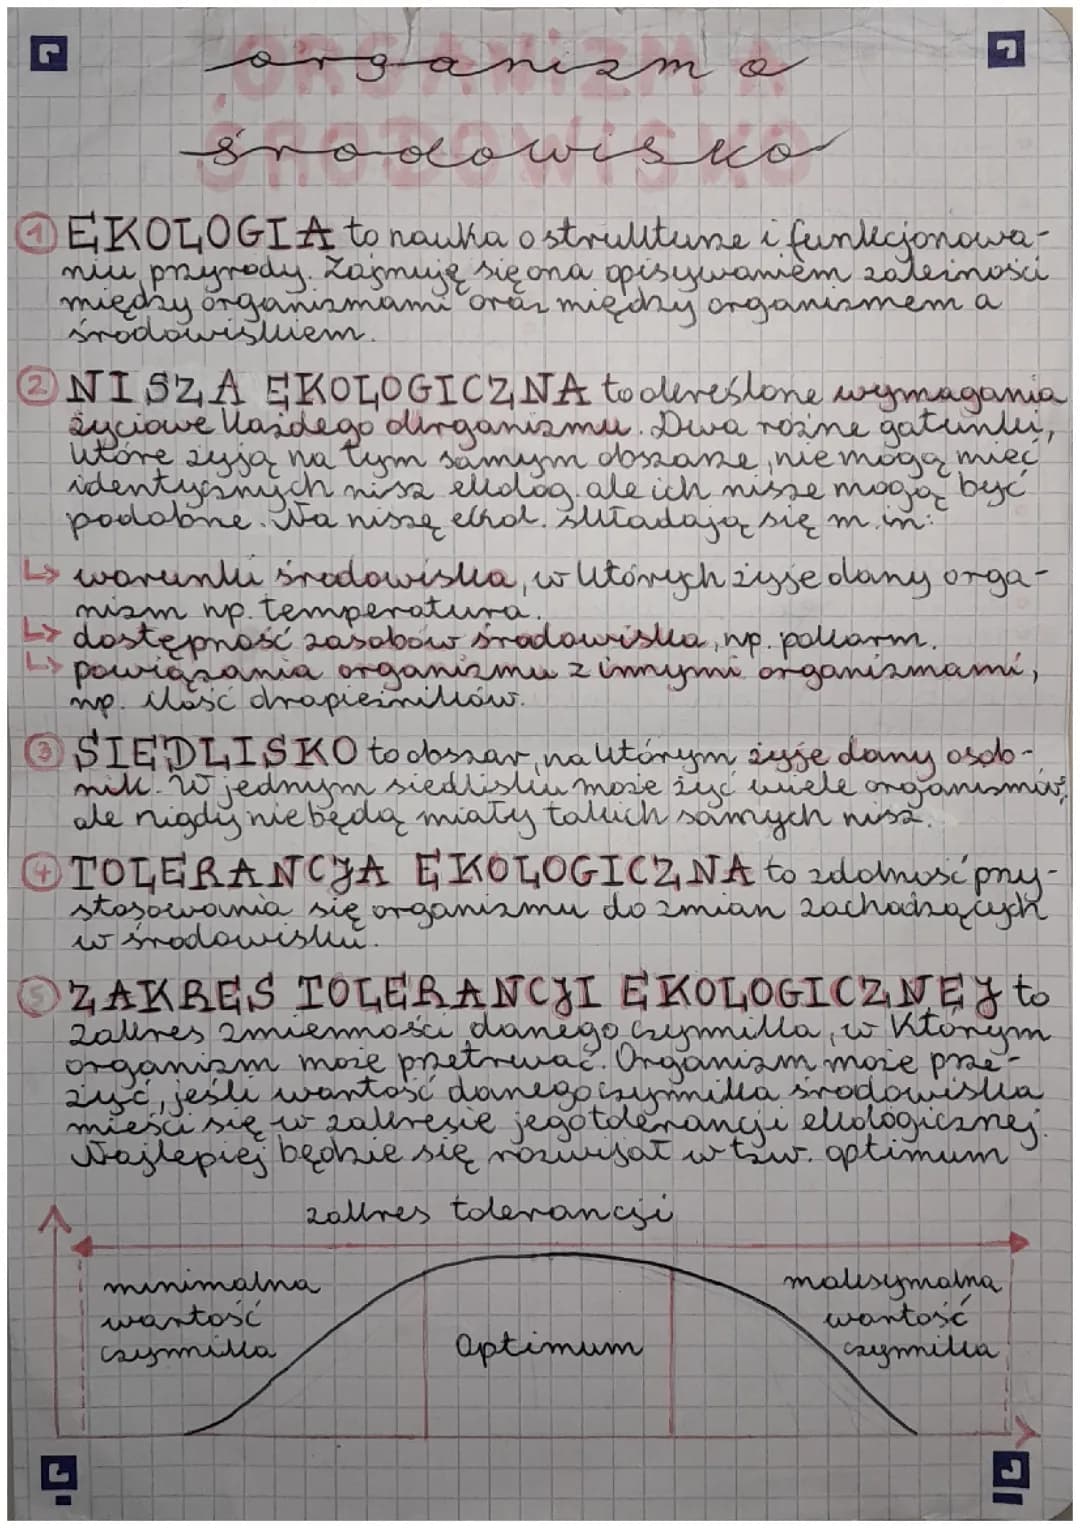 organizm a
środowisko
① EKOLOGIA to nauka o strukturze i funkcjonowa-
niu przyrody. Zajmuję się ona opisywaniem zależności
między organizmami oraz między organizmem a
środowiskiem.
② NISZA EKOLOGICZNA to określone wymagania
życiowe każdego organizmu. Dwa różne gatunki,
które żyją na tym samym obszarze, nie mogą mieć
identycznych nisz ekolog. ale ich nisze mogą być
podobne. Na niszę ekol. składają się m.in:
↳ warunki środowiska, w których żyje dany orga-
nizm np. temperatura.
↳ dostępność zasobów środowiska, np. pokarm.
↳ powiązania organizmu z innymi organizmami,
np. ilość drapieżników.
③ SIEDLISKO to obszar, na którym żyje dany osob-
nik. W jednym siedlisku może żyć wiele organizmów,
ale nigdy nie będą miały takich samych nisz.
④ TOLERANCJA EKOLOGICZNA to zdolność przy-
stosowania się organizmu do zmian zachodzących
w środowisku.
⑤ ZAKRES TOLERANCJI EKOLOGICZNEJ to
zakres zmienności danego czynnika, w którym
organizm może przetrwać. Organizm może prze-
żyć, jeśli wartość danego czynnika środowiska
mieści się w zakresie jego tolerancji ekologicznej.
Najlepiej będzie się rozwijał w tzw. optimum
zakres tolerancji
minimalna
wartość
czynnika
Optimum
maksymalna
wartość
czynnika